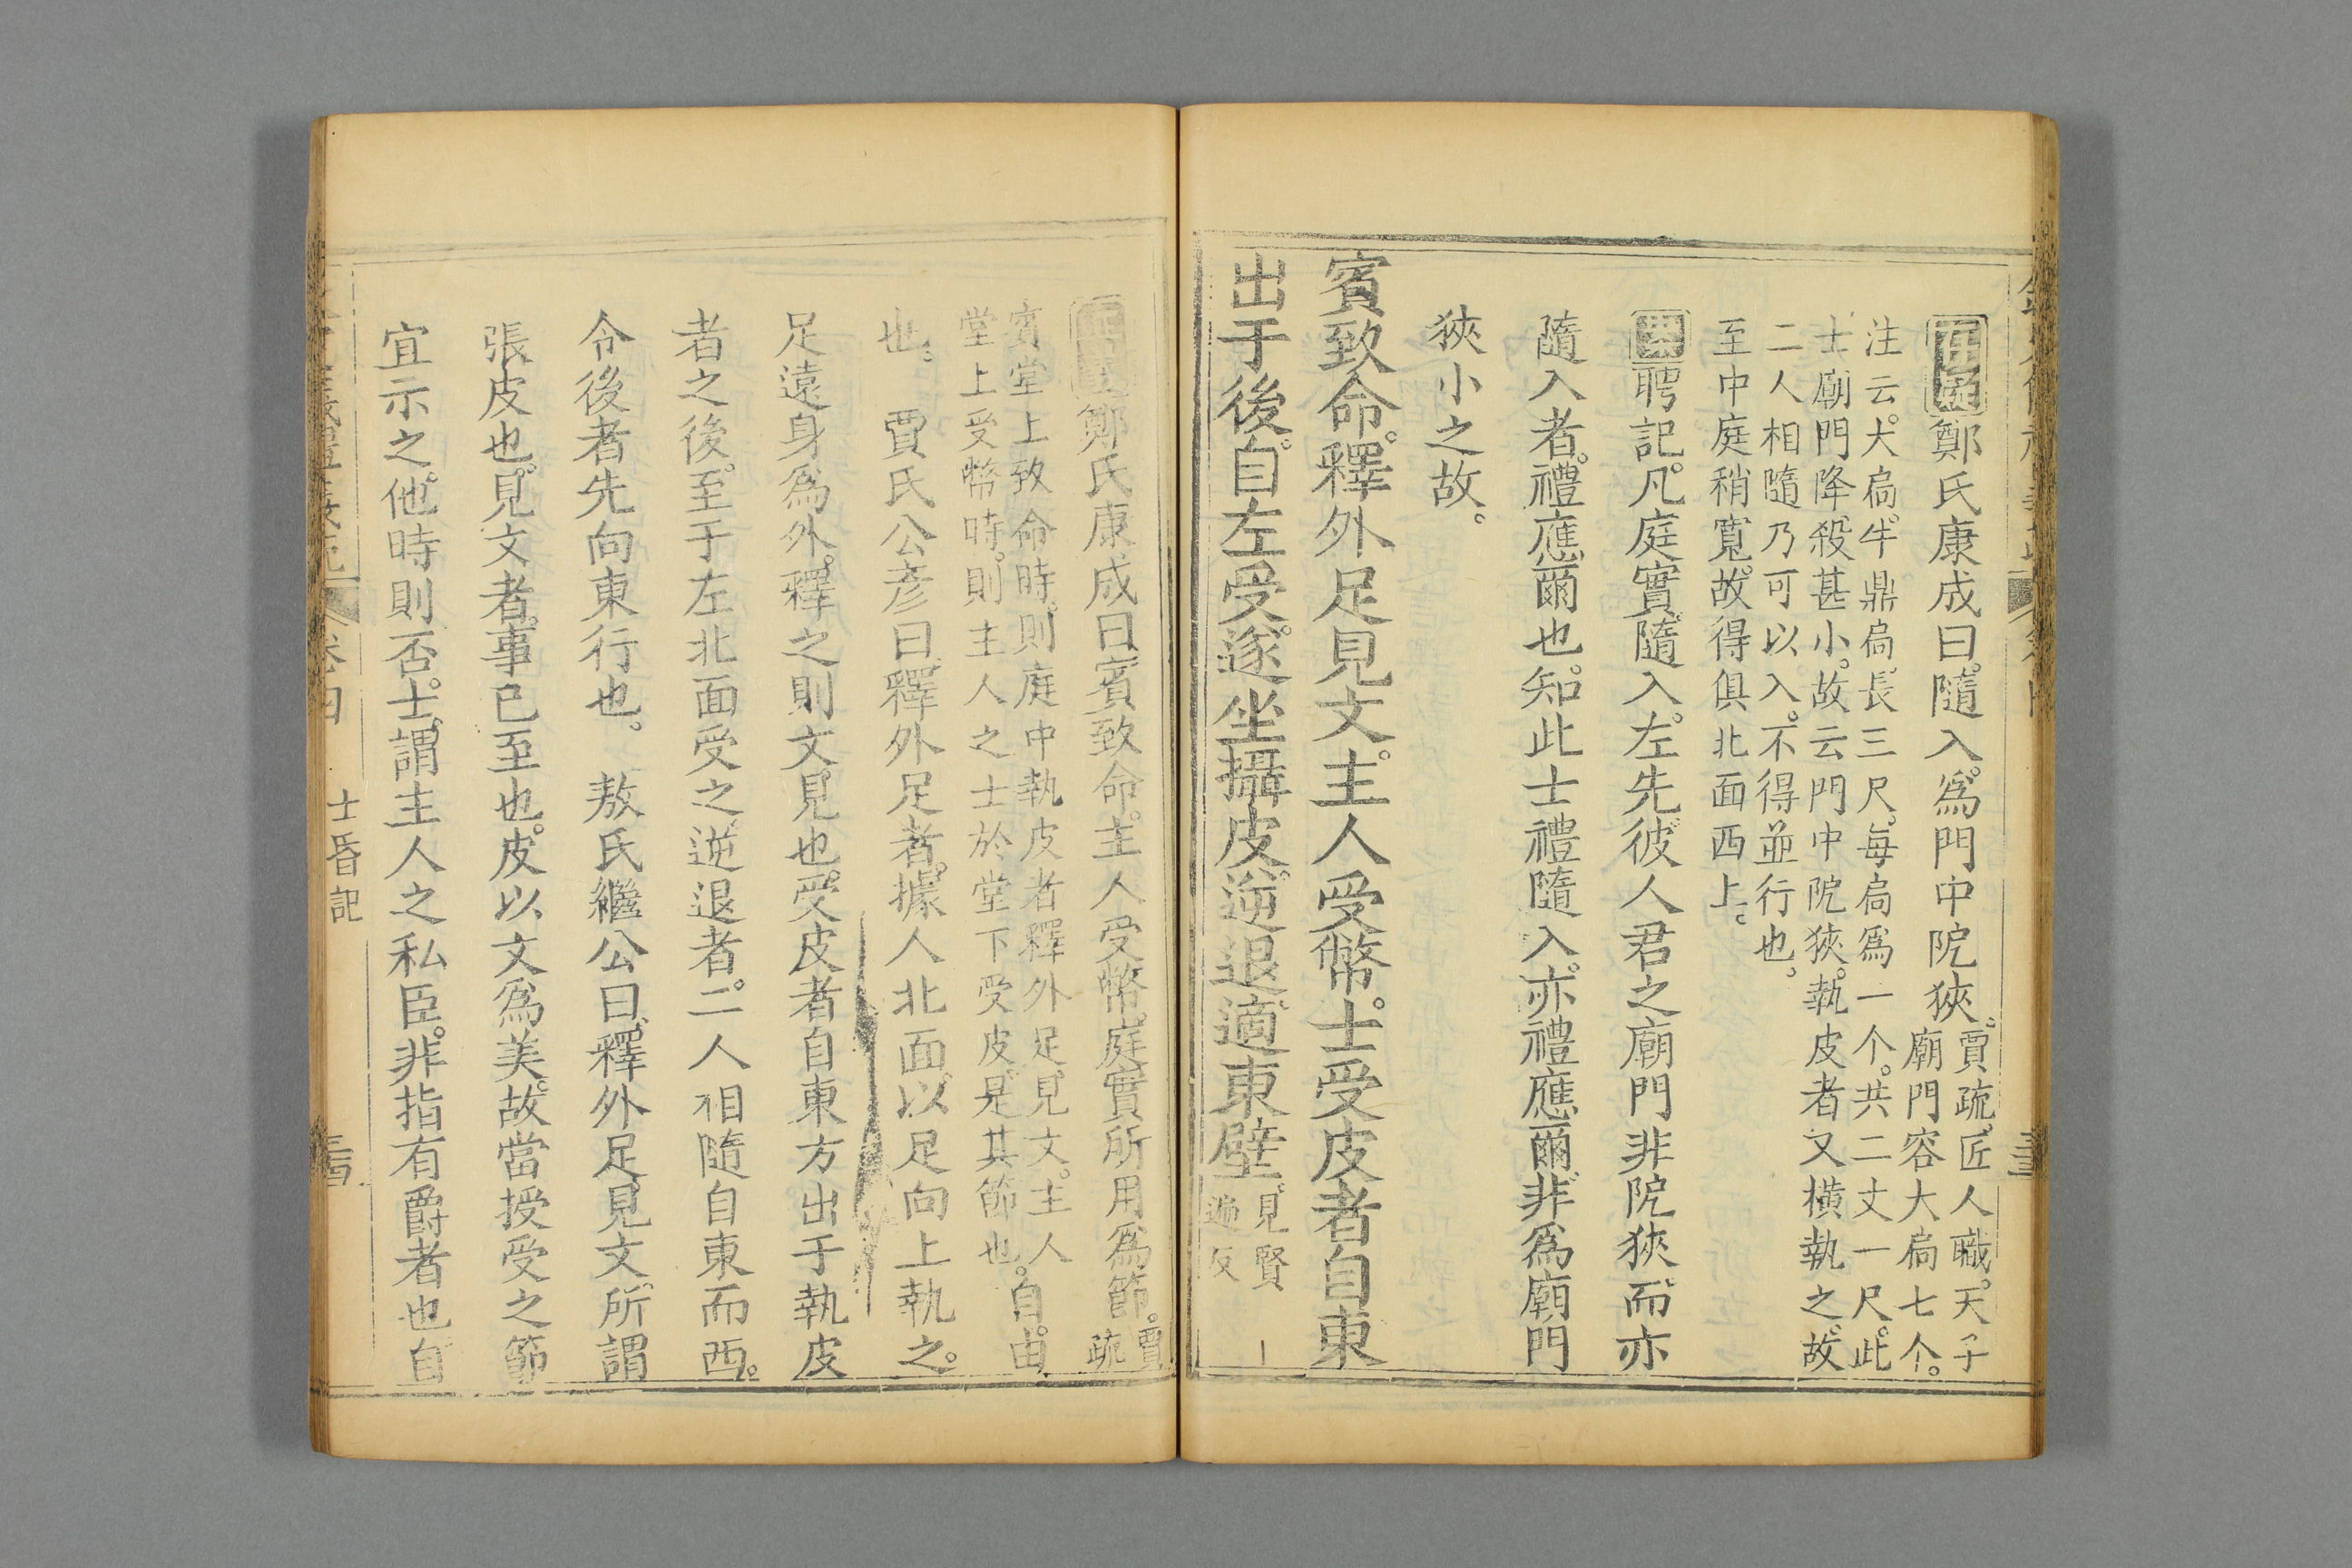 鄭氏康成曰。隨入。爲門中阸狹。賈疏。匠人職。天子
廟門容大扃七个。
注云。大扃。牛鼎扃。長三尺。每扃爲一个。共二丈一尺。此
士廟門降殺甚小。故云門中阸狹。執皮者又橫執之。故
二人相隨乃可以入。不得並行也。
至中庭稍寬。故得俱北面西上。
案聘記。凡庭實。隨入。左先。彼人君之廟門非阸狹。而亦
隨入者。禮應爾也。知此士禮隨入。亦禮應爾。非爲廟門
狹小之故。
賓致命。釋外足見文。主人受幣。士受皮者自東
出于後。自左受。遂坐攝皮。逆退。適東壁。見賢
遍反
鄭氏康成曰賓致命。主人受幣。庭實所用爲節。賈
疏
賓堂上致命時。則庭中執皮者釋外足見文。主人
堂上受幣時。則主人之士於堂下受皮。是其節也。自。由
也。 賈氏公彥曰。釋外足者。據人北面。以足向上執之。
足遠身爲外。釋之則文見也。受皮者自東方出于執皮
者之後。至于左北面受之。逆退者。二人相隨自東而西。
令後者先向東行也。 敖氏繼公曰。釋外足。見文。所謂
張皮也。見文者。事已至也。皮以文爲美。故當授受之節
宜示之。他時則否。士。謂主人之私臣。非指有爵者也自
卷四
士昏記